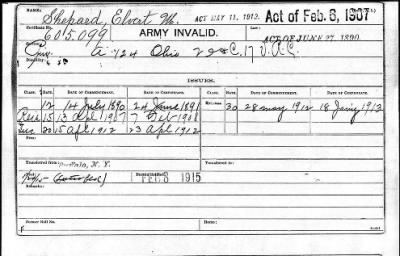 NAME: Shepard, Elvert M. ACT MAY 11, 1912. Act of Feb. 6, 1907
Certificate No. 605.099 ARMY INVALID. ACT OF JUNE 27, 1890.
A 124 Ohio 22 C. 17 V.R.C.
Disability
ISSUES.
CLASS. RATE. DATE OF COMMENCEMENT. DATE OF CERTIFICATE. CLASS. RATE. DATE OF COMMENCEMENT. DATE OF CERTIFICATE.
12 14 July 1890 24 June 1891 30 28 May 1912 18 Jany 1913
15 13 Apl 1907 7 Feb 1908
20 15 Apl 1912 23 Apl 1912
From
Transferred from N. Y.
FEB 8 1915
Remarks:
Former Roll No.